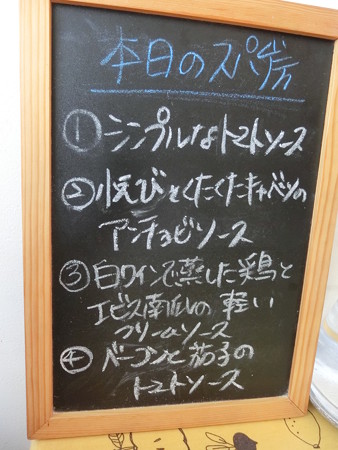 本日のスパゲティ
① シンプルなトマトソース
② 小えびとくたくたキャベツの
アンチョビソース
③ 白ワインで蒸した鶏と
エビス南瓜の軽い
クリームソース
④ ベーコンと茄子の
トマトソース